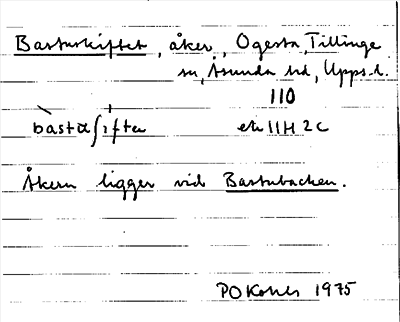 Bastuskiftet, åker, Ogesta, Tillinge
sn, Åsunda hd, Upps. l.
110
bastaʃiftea ek 11H 2c
Åkern ligger vid Bastubacken.
1975